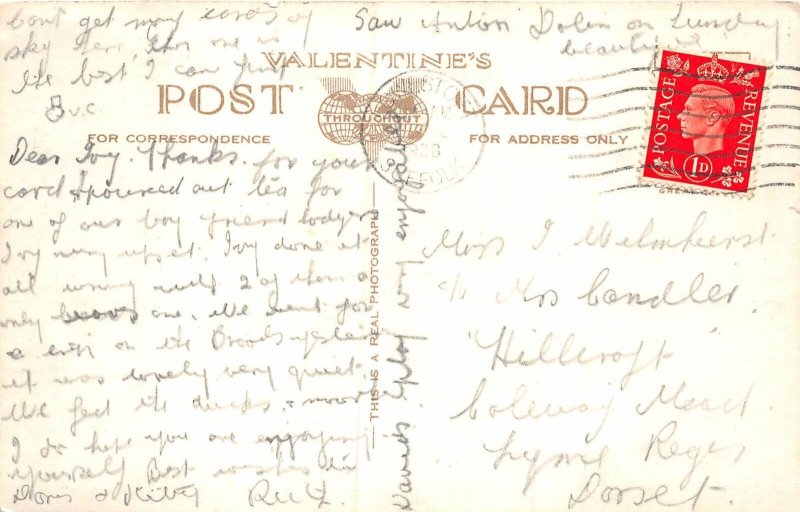 Dear Ivy. Thanks for your
card I poured out tea for
one of our boy friend lodger
Ivy very upset. Ivy done it
all wrong with 2 of them a
only one. We went for
a on the Broads yesterday
it was lovely very quiet.
We feed the ducks &
I do hope you are enjoying
yourself Best wishes
Doris & Kitty
Davids
play very enjoyable
Cant get many cards of
sky here, this one is
the best I can find
Saw Anton Dolin on Tuesday
beautiful
VALENTINE'S
POST CARD
THROUGHOUT
FOR CORRESPONDENCE
FOR ADDRESS ONLY
THIS IS A REAL PHOTOGRAPH
SUFFOLK
POSTAGE REVENUE
1D
Miss I. Welmherst
c/o Mrs Candler.
"Hillcroft"
Coleway Mead.
Lyme Regis
Dorset.